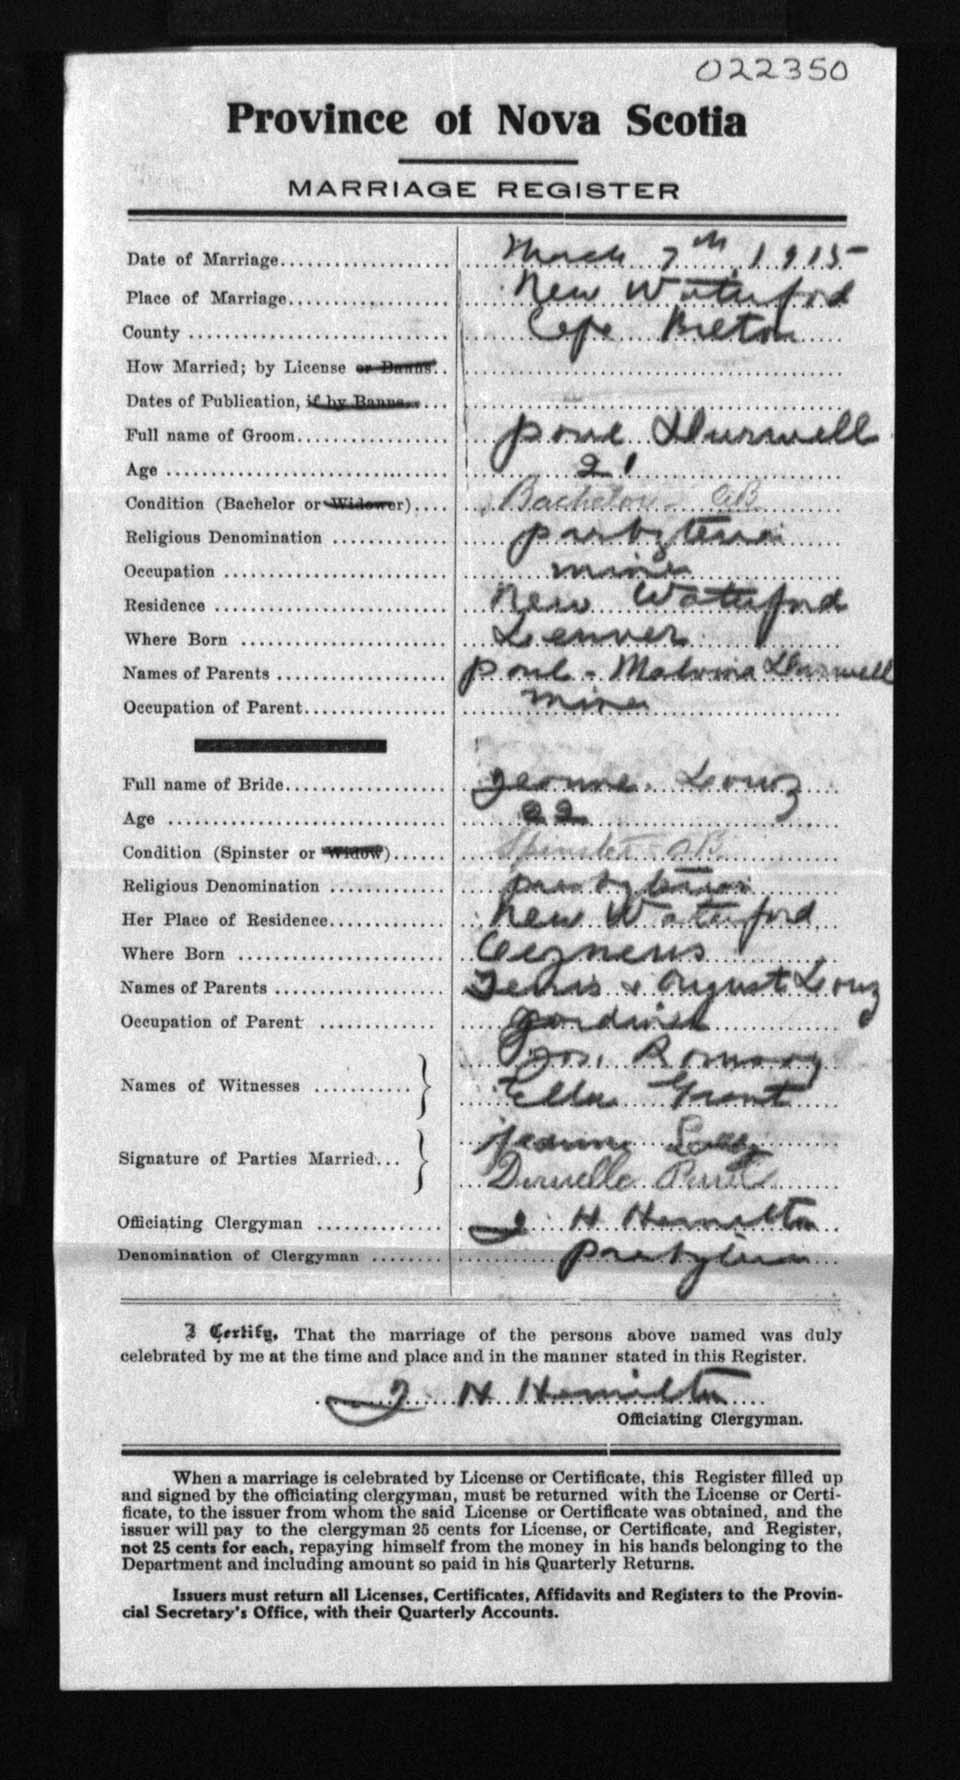 022350
Province of Nova Scotia
MARRIAGE REGISTER
Date of Marriage.................... March 7th 1915
Place of Marriage.................. New Waterford
County ............................. Cape Breton
How Married; by License or Banns..
Dates of Publication, if by Banns.....
Full name of Groom................. Poul Durwell
Age ................................ 21
Condition (Bachelor or Widower).... Bachelor
Religious Denomination .............
Occupation ......................... miner
Residence .......................... New Waterford
Where Born ........................
Names of Parents ................... Poul - Malvina Durwell
Occupation of Parent................ miner
Full name of Bride.................. Jeanne Louz
Age ................................ 22
Condition (Spinster or Widow)...... Spinster
Religious Denomination ............
Her Place of Residence............. New Waterford
Where Born ........................
Names of Parents ................... & August Louz
Occupation of Parent .............
Names of Witnesses ........... Jos.
Ella Grant
Signature of Parties Married...
Officiating Clergyman ............. J H Hamilton
Denomination of Clergyman ........
I Certify, That the marriage of the persons above named was duly
celebrated by me at the time and place and in the manner stated in this Register.
J H Hamilton
Officiating Clergyman.
When a marriage is celebrated by License or Certificate, this Register filled up
and signed by the officiating clergyman, must be returned with the License or Certi-
ficate, to the issuer from whom the said License or Certificate was obtained, and the
issuer will pay to the clergyman 25 cents for License, or Certificate, and Register,
not 25 cents for each, repaying himself from the money in his hands belonging to the
Department and including amount so paid in his Quarterly Returns.
Issuers must return all Licenses, Certificates, Affidavits and Registers to the Provin-
cial Secretary's Office, with their Quarterly Accounts.